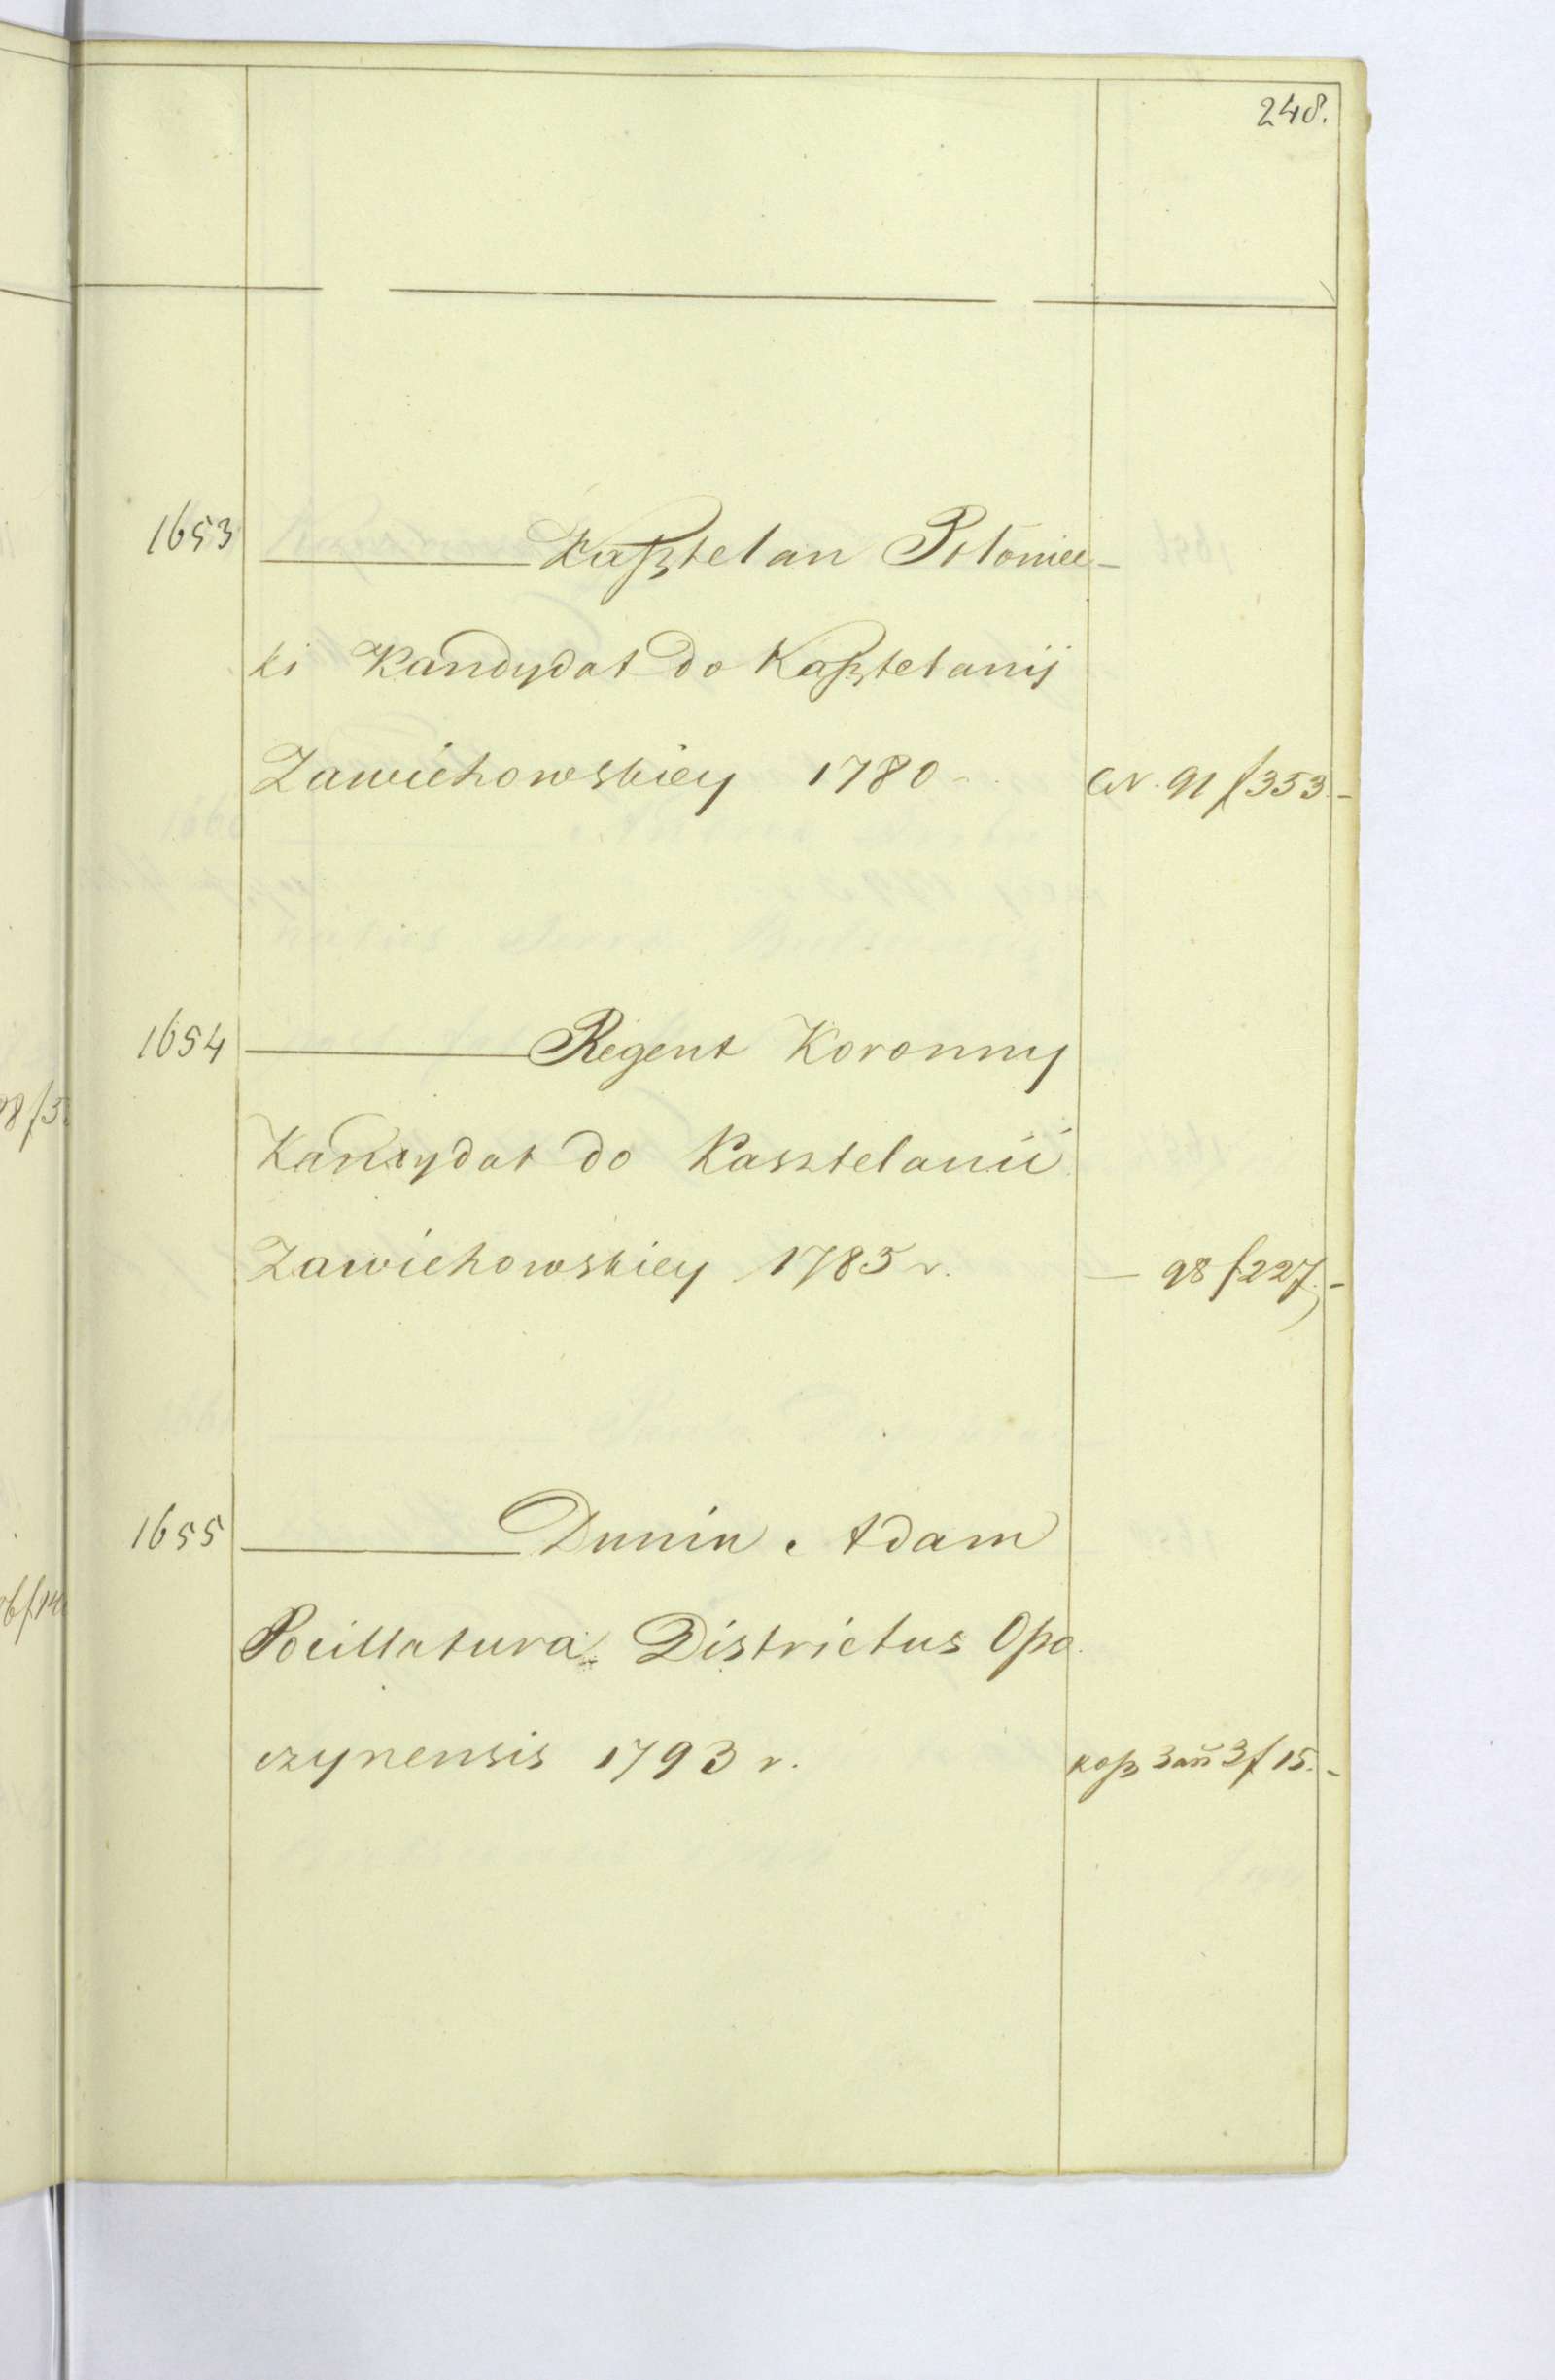 248.
1653 Kasztelan Połaniec-
ki Kandydat do Kasztelanij
Zawichowskiey 1780 91 f 353.-
1654 Regent Koronny
Kandydat do Kasztelanii
Zawichowskiey 1785 r. — 98 f 227.-
1655 Dunin Adam
Pocillatura Districtus Opo
czynensis 1793 r. 3 f 15.-